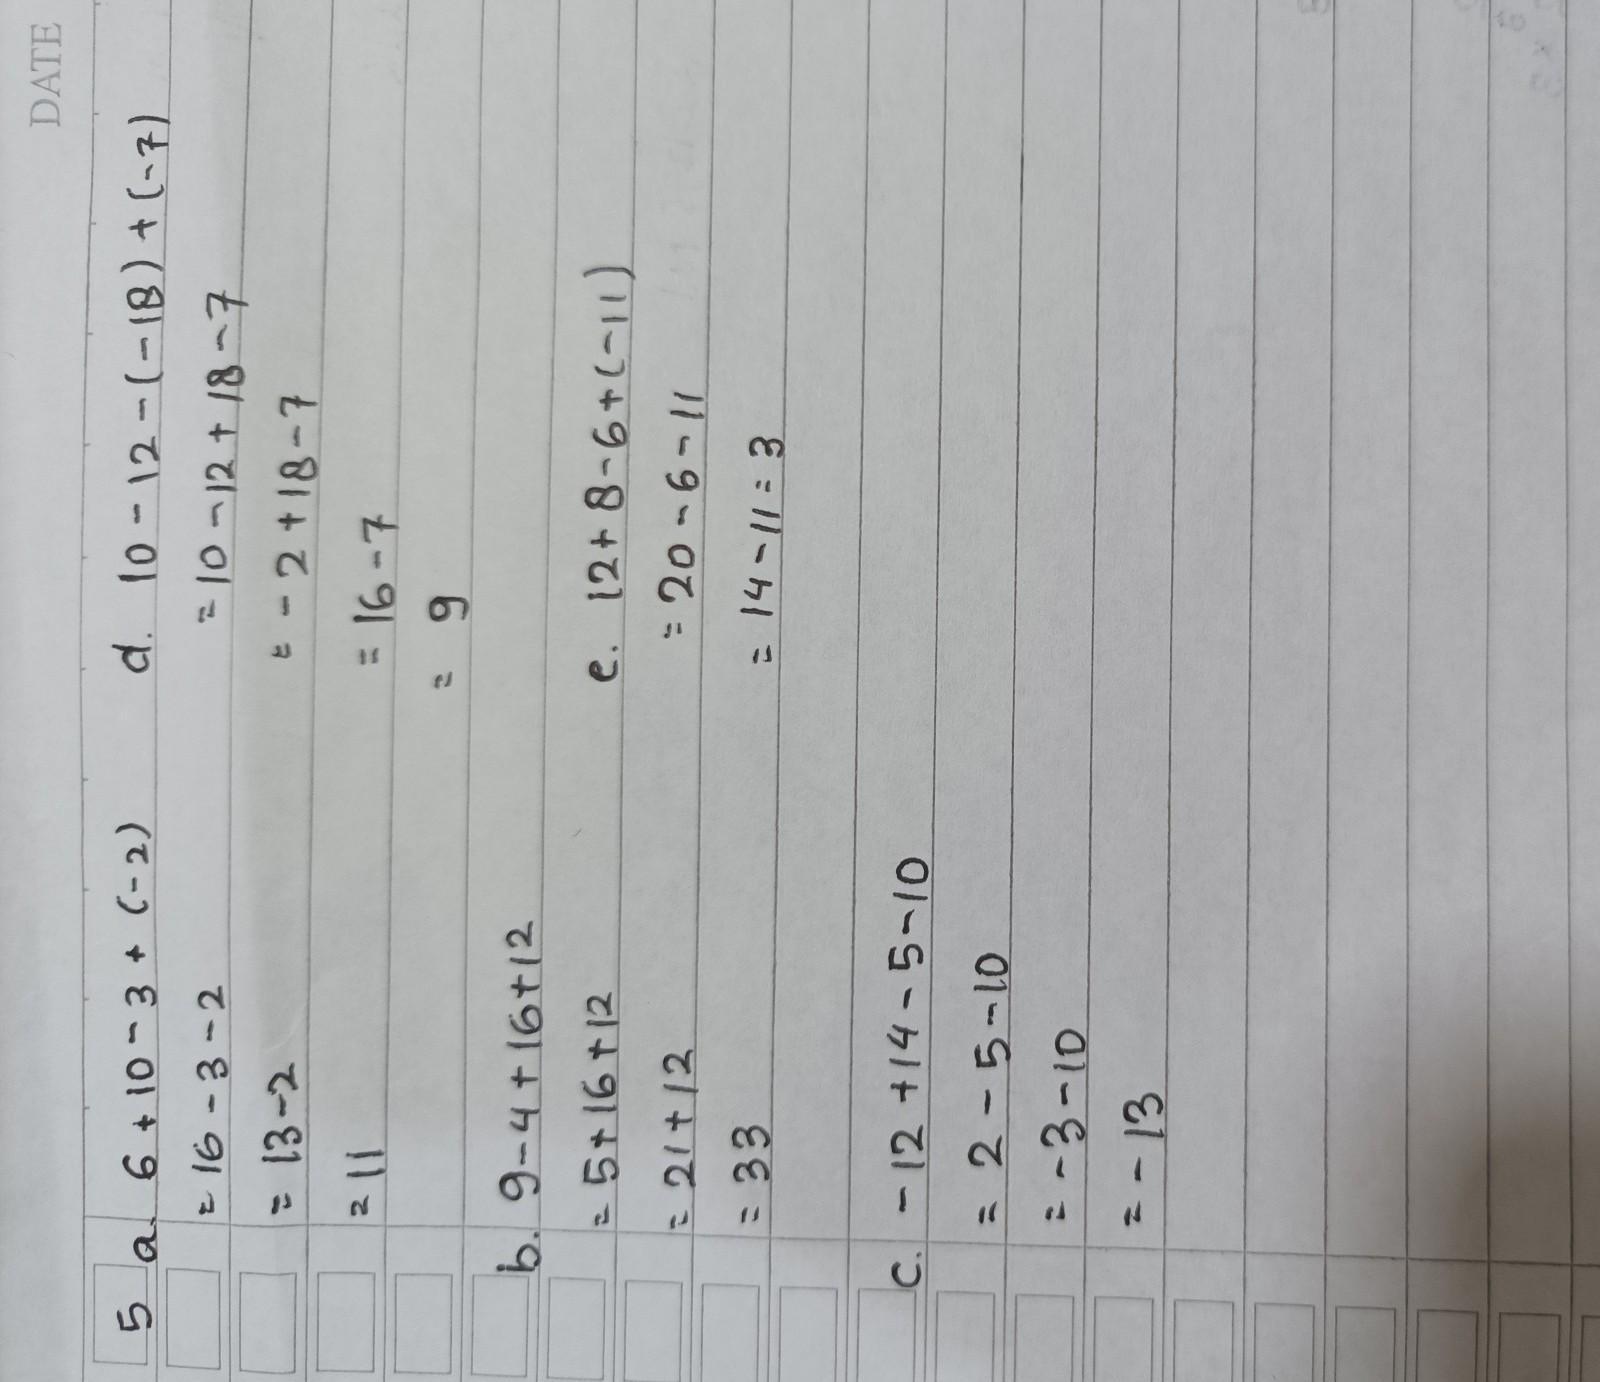 DATE
5 a. 6 + 10 - 3 + (-2)
= 16 - 3 - 2
= 13 - 2
= 11
b. 9 - 4 + 16 + 12
= 5 + 16 + 12
= 21 + 12
= 33
c. -12 + 14 - 5 - 10
= 2 - 5 - 10
= -3 - 10
= -13
d. 10 - 12 - (-18) + (-7)
= 10 - 12 + 18 - 7
= -2 + 18 - 7
= 16 - 7
= 9
e. 12 + 8 - 6 + (-11)
= 20 - 6 - 11
= 14 - 11 = 3